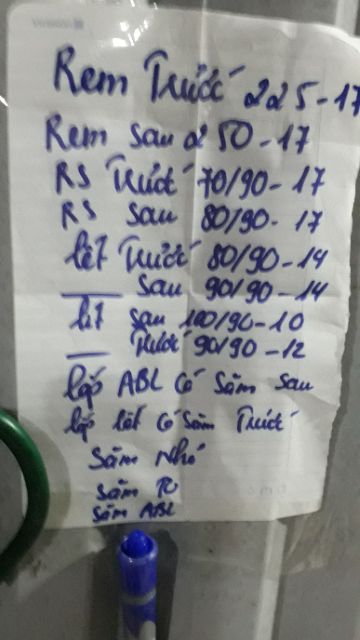 Rem Trước 225-17
Rem sau 250-17
RS Trước 70/90-17
RS sau 80/90-17
lết Trước 80/90-14
sau 90/90-14
lết sau 100/90-10
Trước 90/90-12
lốp ABL có săm sau
lốp lết có săm Trước
săm nhỏ
săm TO
săm ABL